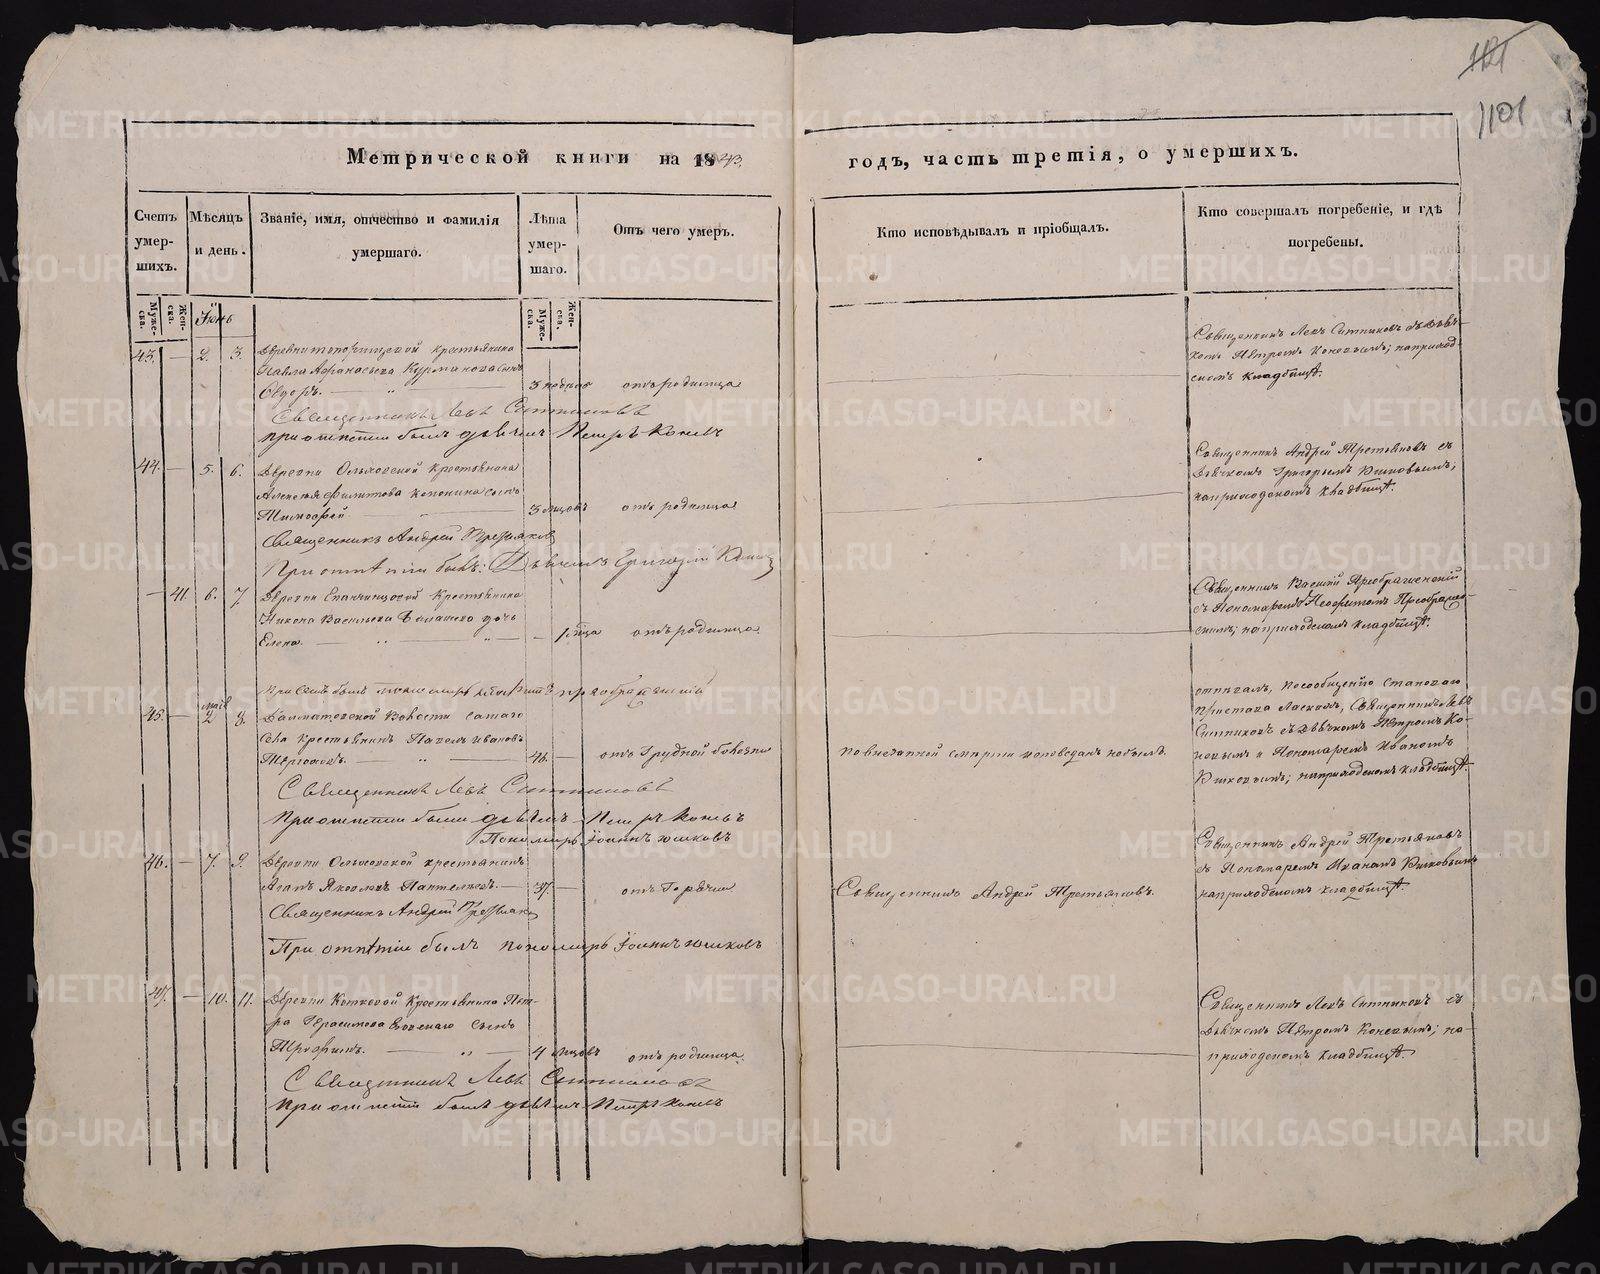 1121
1101
Метрической книги на 1843.
годъ, часть третія, о умершихъ.
Счетъ умер-шихъ.
Мѣсяцъ и день.
Званіе, имя, отчество и фамилія умершаго.
Лѣта умер-шаго.
Отъ чего умеръ.
Кто исповѣдывалъ и пріобщалъ.
Кто совершалъ погребеніе, и гдѣ погребены.
Муже-ска.
Жен-ска.
Іюнь
Муже-ска.
Жен-ска.
43. — 2. 3. крестьянина
Павла Афанасьева Курманова сынъ
Ѳедоръ. 3 недель отъ родимца
Священникъ Левъ Ситниковъ
При отпетіи былъ дьячекъ Петръ Коневъ
Священникъ Левъ Ситниковъ съ дьяч-
комъ Петромъ Коневымъ; на приход-
скомъ кладбищѣ.
44. — 5. 6. Деревни Ольховской крестьянина
Алексѣя Филиппова сынъ
Тимофей 3 мцовъ отъ родимца
Священникъ Андрей Третьяковъ
При отпѣтіи былъ: Дьячекъ Григорій
Священникъ Андрей Третьяковъ съ
дьячкомъ Григорьемъ Юшковымъ;
на приходскомъ кладбищѣ.
— 41. 6. 7. Деревни крестьянина
Никона Васильева Балашева дочь
Елена. — 1 мца отъ родимца
При семъ былъ пономарь Преображенскій
Священникъ Василій Преображенскій
съ Пономаремъ Неофитомъ Преображен-
скимъ; на приходскомъ кладбищѣ.
маія
45. — 2 8. Далматовской Волости самаго
Села крестьянинъ Павелъ Ивановъ
46. — отъ Грудной болезни
по внезапной смерти исповеданъ не былъ.
Священникъ Левъ Ситниковъ
При отпетіи были дьячекъ Петръ Коневъ
Пономарь Іоаннъ Юшковъ
отпѣвалъ, по сообщенію Становаго
Пристава Священникъ Левъ
Ситниковъ съ дьячкомъ Петромъ Ко-
невымъ и Пономаремъ Иваномъ
Юшковымъ; на приходскомъ кладбищѣ.
46. — 7. 9. Деревни Ольховской крестьянинъ
Яковлевъ Пантелѣевъ. — 37. — отъ Горячки
Священникъ Андрей Третьяковъ.
Священникъ Андрей Третьяковъ
При отпѣтіи былъ пономарь Іоаннъ Юшковъ
Священникъ Андрей Третьяковъ
съ Пономаремъ Иваномъ Юшковымъ
на приходскомъ кладбищѣ.
47. — 10. 11. Деревни крестьянина Пет-
ра Герасимова сынъ
Трофимъ. 4 мцовъ отъ родимца.
Священникъ Левъ Ситниковъ
При отпетіи былъ дьячекъ Петръ Коневъ
Священникъ Левъ Ситниковъ съ
дьячкомъ Петромъ Коневымъ; на
приходскомъ кладбищѣ.
METRIKI.GASO-URAL.RU